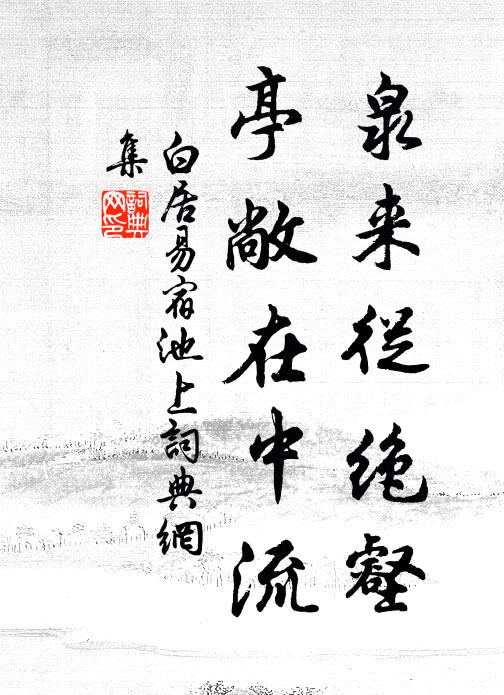 泉来從絶壑
亭敞在中流
白居易宿池上詞典網
集
詞典
网印